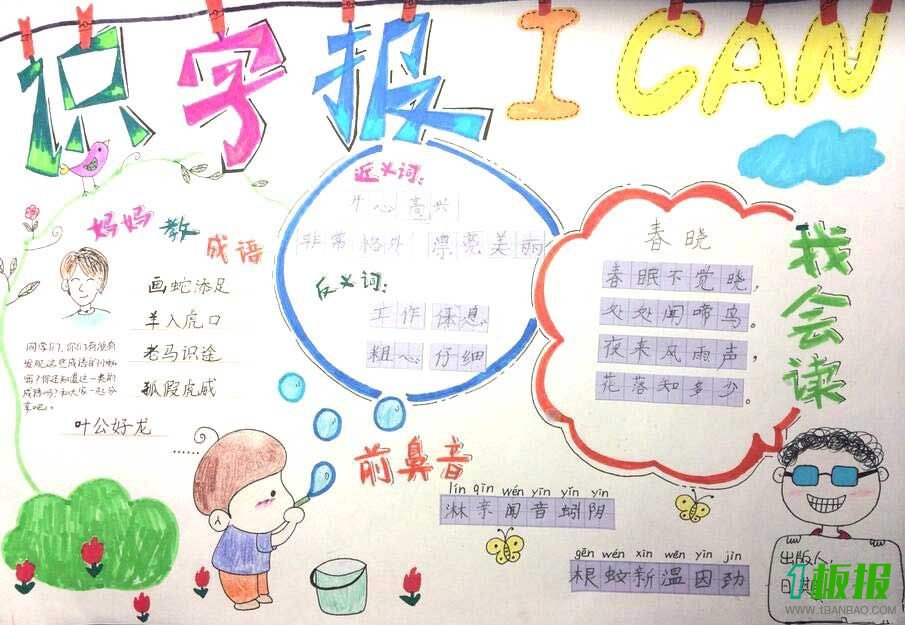 识字报 I CAN
妈妈教成语
画蛇添足
羊入虎口
老马识途
狐假虎威
叶公好龙
……
同学们，你们有没有
发现这些成语的小秘
密？你还知道这一类的
成语吗？和大家一起分
享吧。
近义词：
开心 高兴
非常 格外 漂亮 美丽
反义词：
工作 休息
粗心 仔细
春晓
春眠不觉晓，
处处闻啼鸟。
夜来风雨声，
花落知多少。
我会读
前鼻音
lín qīn wén yīn yǐn yīn
淋亲闻音蚓阴
gēn wén xīn wēn yīn jìn
根蚊新温因劲
出版人：
日期
1板报
WWW.1BANBAO.COM